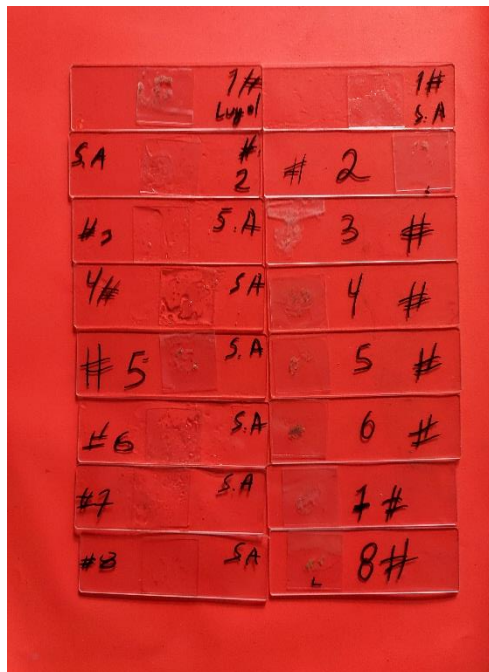 1#
Lugol
1#
S.A
S.A
#
2
# 2
S.A
3 #
4#
S.A
4 #
# 5
S.A
5 #
#6
S.A
6 #
#7
S.A
7 #
#8
S.A
L
8#